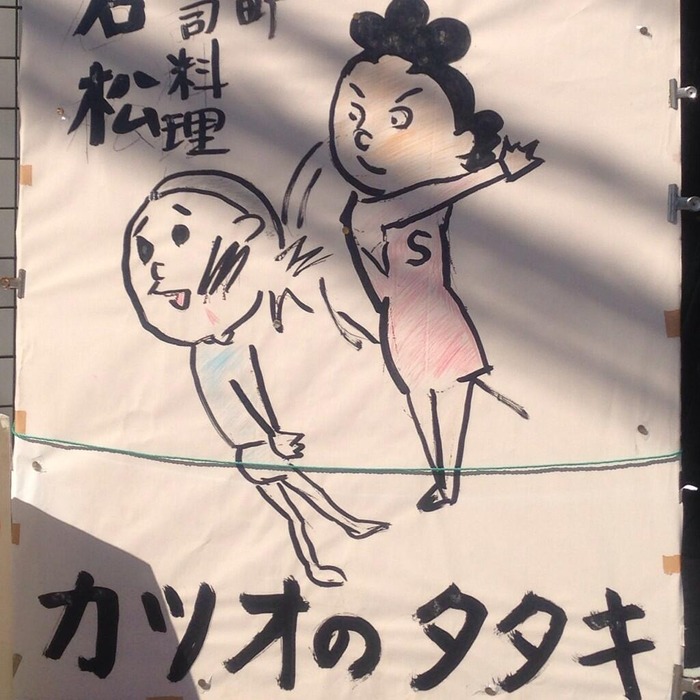 町
司料理
松
S
カツオのタタキ